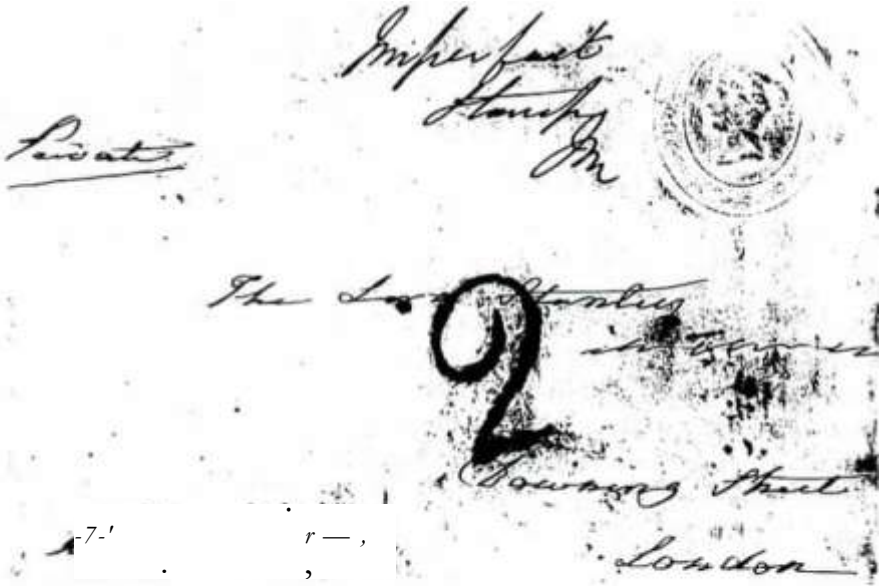 Imperfect
Stamp
Private
The Lord Stanley
2
Downing Street
London
-7-'
r — ,